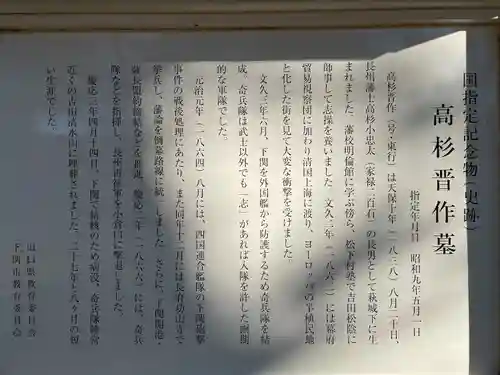 国指定記念物(史跡)
高杉晋作墓
指定年月日 昭和九年五月一日
高杉晋作(号・東行)は天保十年(一八三九)八月二十日、
長州藩士高杉小忠太(家禄二百石)の長男として萩城下に生
まれました。藩校明倫館に学ぶ傍ら、松下村塾で吉田松陰に
師事して志操を養いました。文久二年(一八六二)には幕府
貿易視察団に加わり清国上海に渡り、ヨーロッパの半植民地
と化した街を見て大変な衝撃を受けました。
文久三年六月、下関を外国艦から防護するため奇兵隊を結
成。奇兵隊は武士以外でも「志」があれば入隊を許した画期
的な軍隊でした。
元治元年(一八六四)八月には、四国連合艦隊の下関砲撃
事件の戦後処理にあたり、また同年十二月には長府功山寺で
挙兵して、藩論を倒幕路線に統一しました。さらに、下関開港・
薩長盟約締結などを推進、慶応二年(一八六六)には、奇兵
隊などを指揮し、長州再征軍を小倉口に撃退しました。
慶応三年四月十四日、下関で結核のため病没、奇兵隊陣営
近くの吉田清水山に埋葬されました。二十七年と八ヶ月の短
い生涯でした。
山口県教育委員会
下関市教育委員会